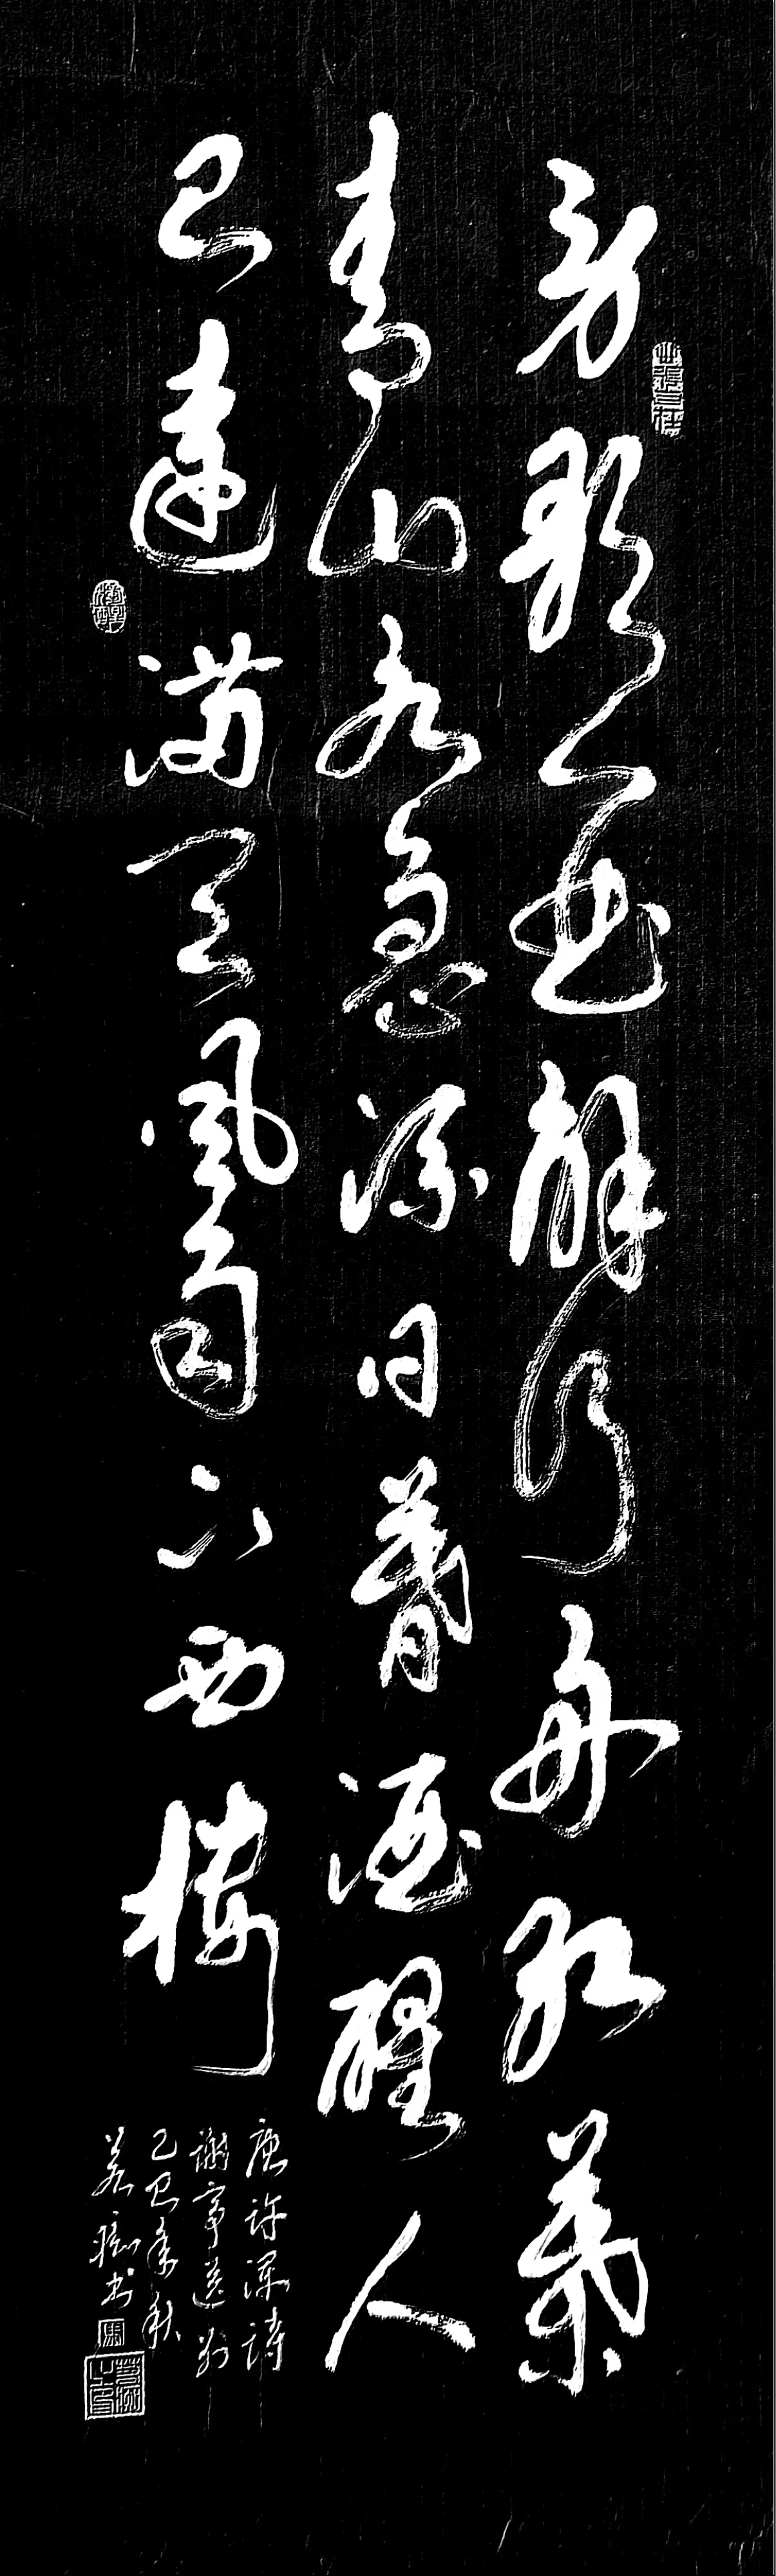 勞歌一曲解行舟紅葉
青山水急流日暮酒醒人
已遠滿天風雨下西樓
唐許渾詩
謝亭送别
年秋
書